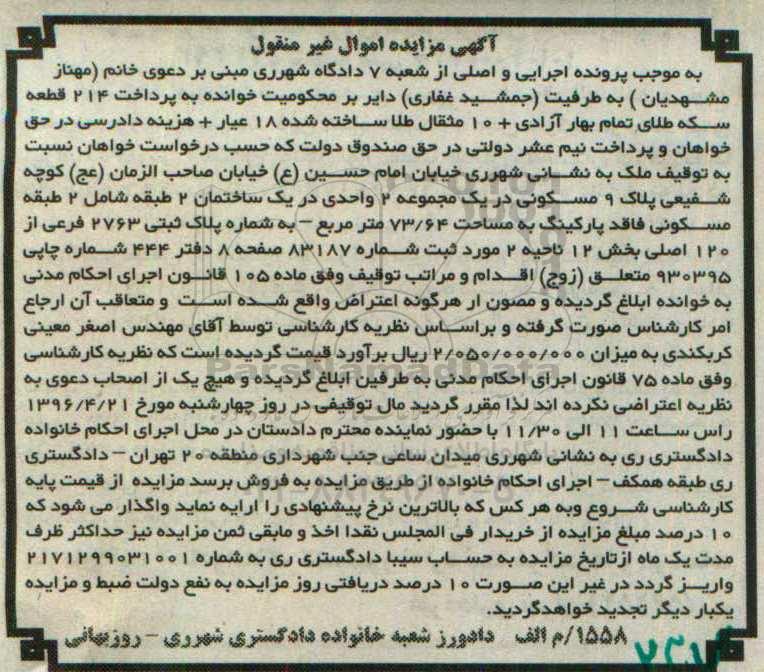 آگهی مزایده اموال غیر منقول
به موجب پرونده اجرایی و اصلی از شعبه ۷ دادگاه شهرری مبنی بر دعوی خانم (مهناز
مشهدیان ) به طرفیت (جمشید غفاری) دایر بر محکومیت خوانده به پرداخت ۲۱۴ قطعه
سکه طلای تمام بهار آزادی + ۱۰ مثقال طلا ساخته شده ۱۸ عیار + هزینه دادرسی در حق
خواهان و پرداخت نیم عشر دولتی در حق صندوق دولت که حسب درخواست خواهان نسبت
به توقیف ملک به نشانی شهرری خیابان امام حسین (ع) خیابان صاحب الزمان (عج) کوچه
شفیعی پلاک ۹ مسکونی در یک مجموعه ۲ واحدی در یک ساختمان ۲ طبقه شامل ۲ طبقه
مسکونی فاقد پارکینگ به مساحت ۷۳/۶۴ متر مربع – به شماره پلاک ثبتی ۲۷۶۳ فرعی از
۱۲۰ اصلی بخش ۱۲ ناحیه ۲ مورد ثبت شماره ۸۳۱۸۷ صفحه ۸ دفتر ۴۴۴ شماره چاپی
۹۳۰۳۹۵ متعلق (زوج) اقدام و مراتب توقیف وفق ماده ۱۰۵ قانون اجرای احکام مدنی
به خوانده ابلاغ گردیده و مصون ار هرگونه اعتراض واقع شده است و متعاقب آن ارجاع
امر کارشناس صورت گرفته و براساس نظریه کارشناسی توسط آقای مهندس اصغر معینی
کربکندی به میزان ۲/۰۵۰/۰۰۰/۰۰۰ ریال برآورد قیمت گردیده است که نظریه کارشناسی
وفق ماده ۷۵ قانون اجرای احکام مدنی به طرفین ابلاغ گردیده و هیچ یک از اصحاب دعوی به
نظریه اعتراضی نکرده اند لذا مقرر گردید مال توقیفی در روز چهارشنبه مورخ ۱۳۹۶/۴/۲۱
راس ساعت ۱۱ الی ۱۱/۳۰ با حضور نماینده محترم دادستان در محل اجرای احکام خانواده
دادگستری ری به نشانی شهرری میدان ساعی جنب شهرداری منطقه ۲۰ تهران – دادگستری
ری طبقه همکف – اجرای احکام خانواده از طریق مزایده به فروش برسد مزایده از قیمت پایه
کارشناسی شروع وبه هر کس که بالاترین نرخ پیشنهادی را ارایه نماید واگذار می شود که
۱۰ درصد مبلغ مزایده از خریدار فی المجلس نقدا اخذ و مابقی ثمن مزایده نیز حداکثر ظرف
مدت یک ماه ازتاریخ مزایده به حساب سیبا دادگستری ری به شماره ۲۱۷۱۲۹۹۰۳۱۰۰۱
واریز گردد در غیر این صورت ۱۰ درصد دریافتی روز مزایده به نفع دولت ضبط و مزایده
یکبار دیگر تجدید خواهدگردید.
۱۵۵۸/م الف دادورز شعبه خانواده دادگستری شهرری – روزبهانی
ParsNamadData